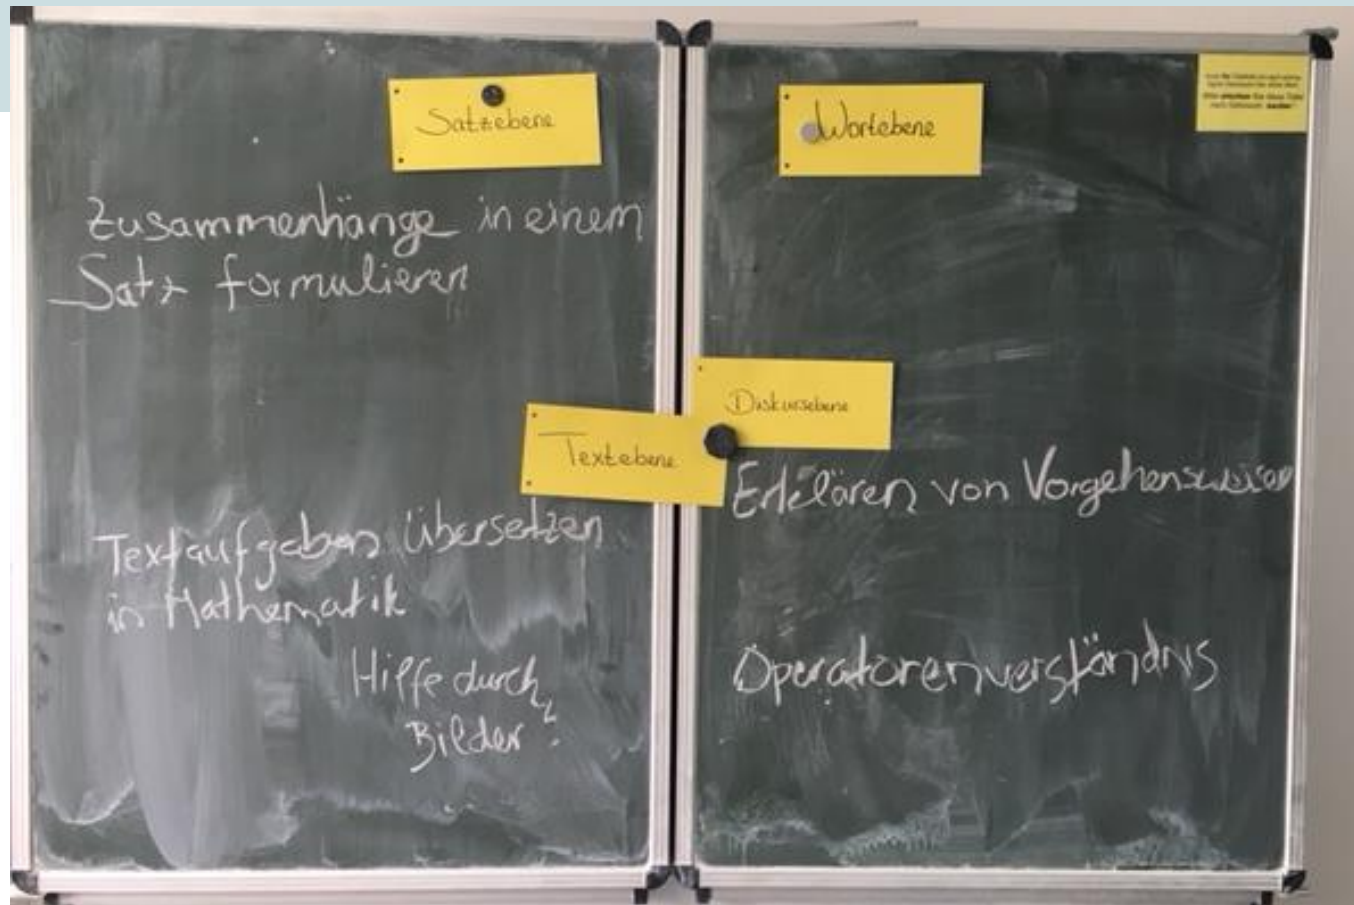 Satzebene
Zusammenhänge in einem
Satz formulieren
Textebene
Textaufgaben übersetzen
in Mathematik
Hilfe durch
Bilder?
Wortebene
Diskursebene
Erklären von Vorgehensweisen
Operatorenverständnis